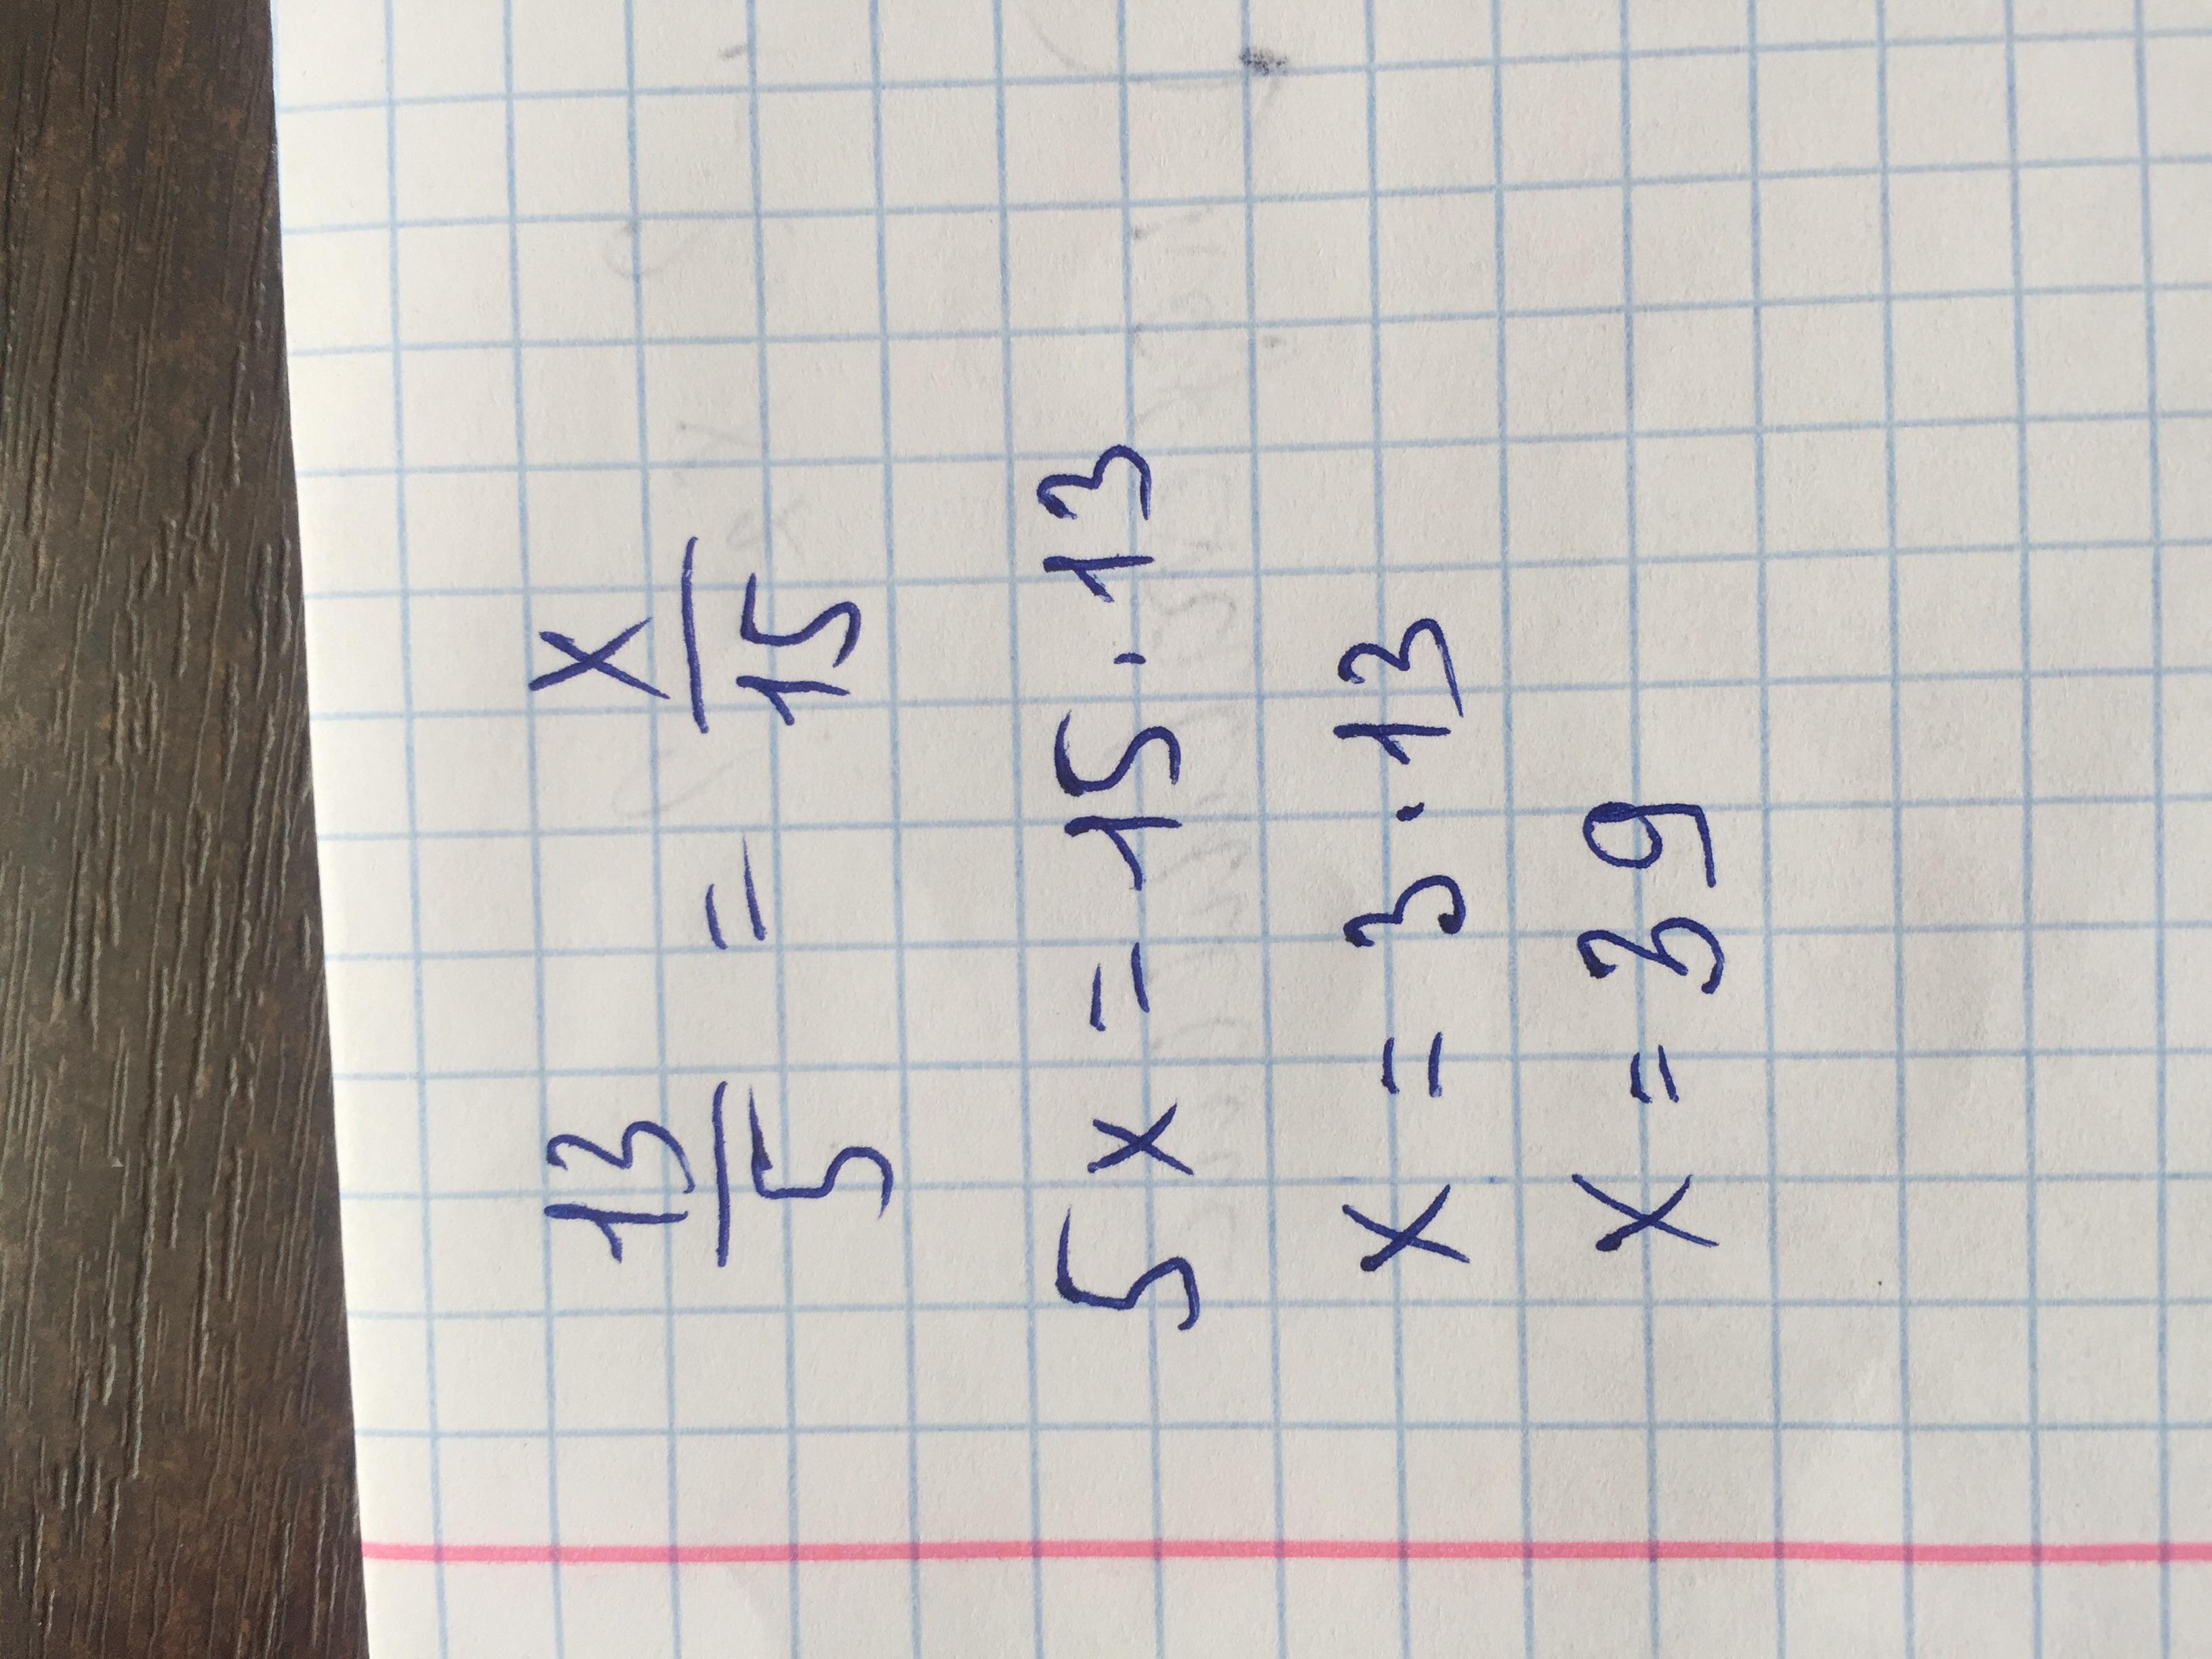 13/5 = x/15
5x = 15 · 13
x = 3 · 13
x = 39